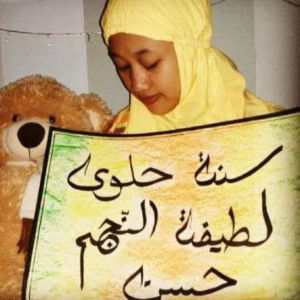 سنة حلوى
لطيفة النّجم
حسن